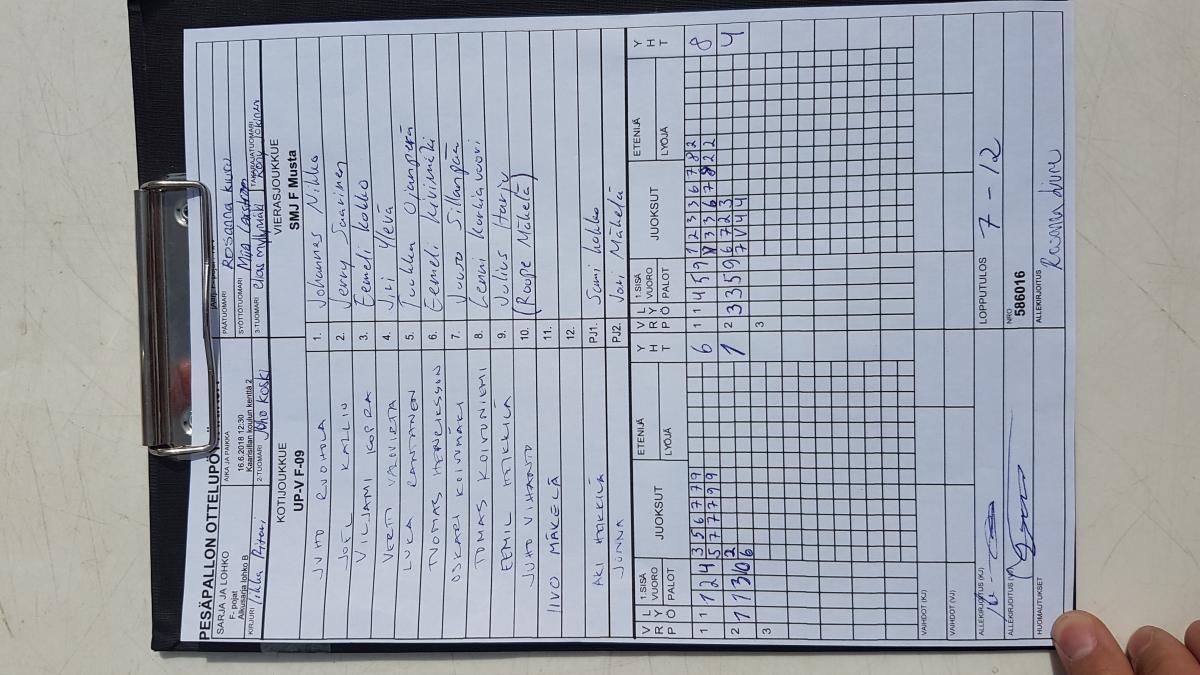 PESÄPALLON OTTELUPÖYTÄKIRJA
SARJA JA LOHKO
F- pojat
Alkusarja lohko B
AIKA JA PAIKKA
16.6.2018 12:30
Kaarisillan koulun kenttä 2
PÄÄTUOMARI Rosanna Kiuru
SYÖTTÖTUOMARI Miia
KIRJURI Ilkka Piiteri
2-TUOMARI Juho Koski
3-TUOMARI elias myllymäki
TAKARAJATUOMARI Rony Jokinen
KOTIJOUKKUE
UP-V F-09
VIERASJOUKKUE
SMJ F Musta
JUHO RUOHOLA 1. Johannes Nikko
JOEL KALLIO 2. Jerry Saarinen
VILJAMI KOPRA 3. Eemeli Kokko
VERTI VALOVIRTA 4. Jiri Ylevä
LUKA RANTANEN 5. Tuukka Ojanperä
TUOMAS HENRIKSSON 6. Eemeli Kiviniemi
OSKARI KOIVUMÄKI 7. Juuso Sillanpää
TOMAS KOIVUNIEMI 8. Lenni Korkiavuori
EEMIL HÄKKILÄ 9. Julius Harju
JUHO VIHANTO 10. (Roope Mäkelä)
IIVO MÄKELÄ 11.
12.
AKI HÄKKILÄ PJ1. Sami Kokko
JONNA PJ2. Jari Mäkelä
V R P L Y Ö 1.SISÄ VUORO PALOT JUOKSUT ETENIJÄ LYÖJÄ Y H T V R P L Y Ö 1.SISÄ VUORO PALOT JUOKSUT ETENIJÄ LYÖJÄ Y H T
1 1 1 2 4 3 5 6 7 7 9 6 1 1 4 5 9 1 2 3 3 6 7 8 2 8
5 7 7 7 9 9
2 1 1 3 10 2 1 2 3 3 5 9 6 7 2 3 4
6 7 V 4 4
3 3
VAIHDOT (KJ)
VAIHDOT (VJ)
ALLEKIRJOITUS (KJ)
LOPPUTULOS 7 - 12
ALLEKIRJOITUS (VJ)
NRO
586016
HUOMAUTUKSET
ALLEKIRJOITUS